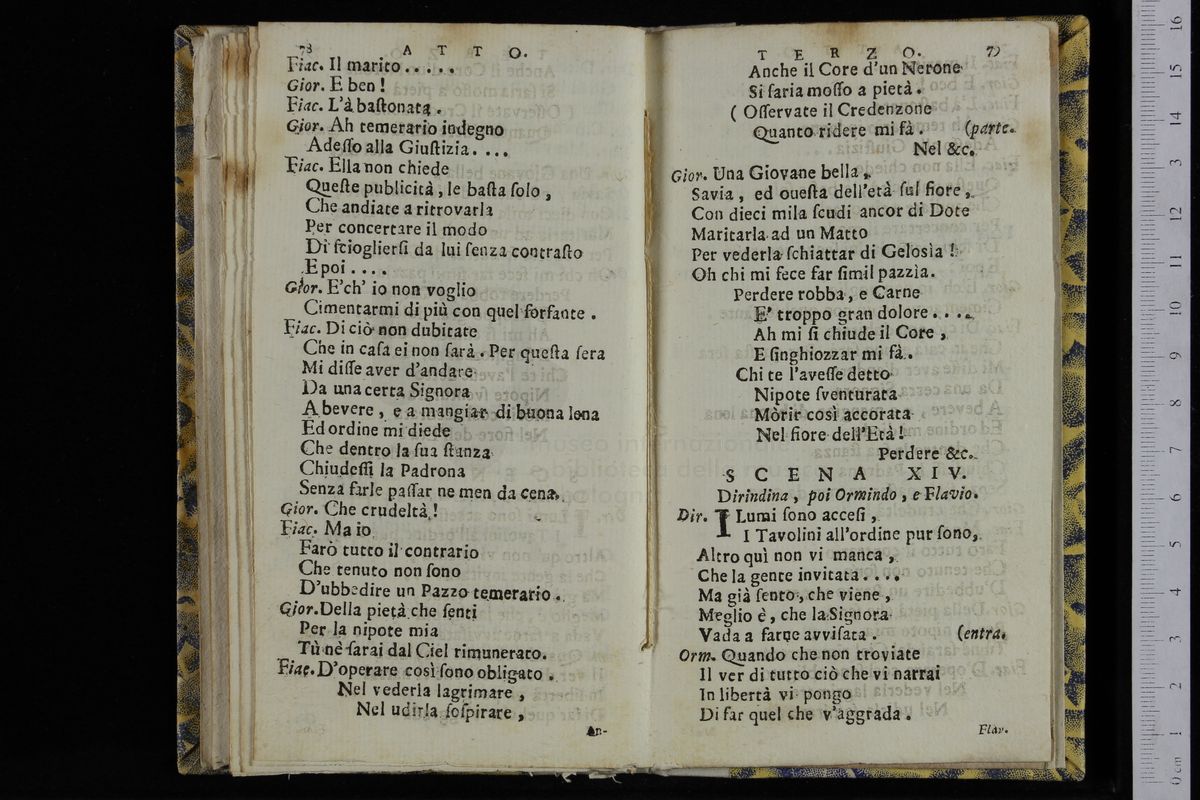 78 ATTO.
Fiac. Il marito.....
Gior. E ben!
Fiac. L'à baſtonata.
Gior. Ah temerario indegno
Adeſſo alla Giuſtizia....
Fiac. Ella non chiede
Queſte publicità, le baſta ſolo,
Che andiate a ritrovarla
Per concertare il modo
Di ſcioglierſi da lui ſenza contraſto
E poi....
Gior. E'ch' io non voglio
Cimentarmi di più con quel forfante.
Fiac. Di ciò non dubitate
Che in caſa ei non ſarà. Per queſta ſera
Mi diſſe aver d'andare
Da una certa Signora
A bevere, e a mangiar di buona lena
Ed ordine mi diede
Che dentro la ſua ſtanza
Chiudeſſi la Padrona
Senza farle paſſar ne men da cena.
Gior. Che crudeltà!
Fiac. Ma io
Farò tutto il contrario
Che tenuto non ſono
D'ubbedire un Pazzo temerario.
Gior. Della pietà che ſenti
Per la nipote mia
Tù nè ſarai dal Ciel rimunerato.
Fiac. D'operare così ſono obligato.
Nel vederla lagrimare,
Nel udirla ſoſpirare,
An-
TERZO. 79
Anche il Core d'un Nerone
Si faria moſſo a pietà.
( Oſſervate il Credenzone
Quanto ridere mi fà. (parte.
Nel &c.
Gior. Una Giovane bella,
Savia, ed oueſta dell'età ſul fiore,
Con dieci mila ſcudi ancor di Dote
Maritarla ad un Matto
Per vederla ſchiattar di Gelosìa!
Oh chi mi fece far ſimil pazzìa.
Perdere robba, e Carne
E' troppo gran dolore....
Ah mi ſi chiude il Core,
E ſinghiozzar mi fà.
Chi te l'aveſſe detto
Nipote ſventurata
Mòrir così accorata
Nel fiore dell'Età!
Perdere &c.
SCENA XIV.
Dirindina, poi Ormindo, e Flavio.
Dir. I Lumi ſono acceſi,
I Tavolini all'ordine pur ſono,
Altro quì non vi manca,
Che la gente invitata....
Ma già ſento, che viene,
Meglio è, che la Signora
Vada a farne avviſata. (entra.
Orm. Quando che non troviate
Il ver di tutto ciò che vi narrai
In libertà vi pongo
Di far quel che v'aggrada.
Flav.